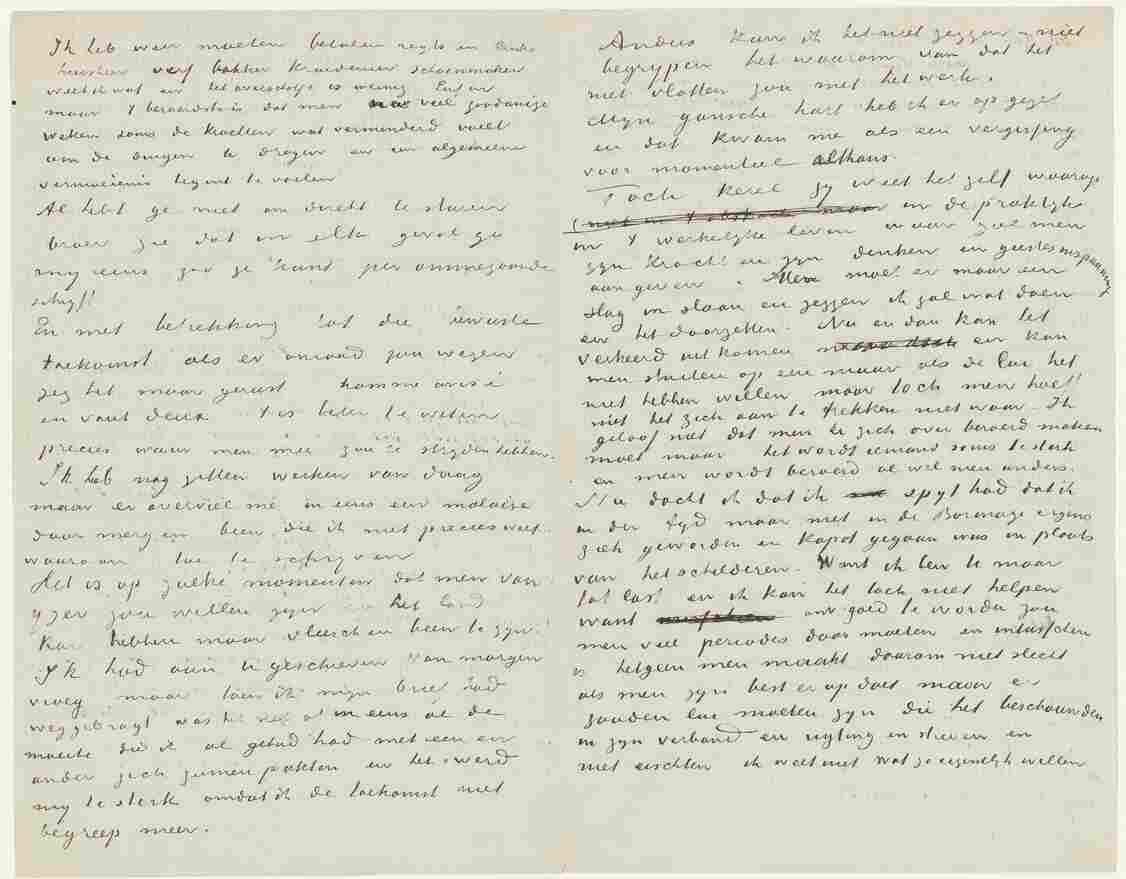 Ik heb weer moeten betalen regts en links
huisheer verf bakker kruidenier schoenmaker
weet ik wat en het overschot is weinig. Enfin
maar 't beroerdste is dat men na veel zoodanige
weken soms de krachten wat verminderd voelt
om de dingen te dragen en een algemeene
vermoeienis begint te voelen
Al hebt ge niet om direkt te sturen
broer zie dat in elk geval ge
my eens per ommegaande
schryft
En met betrekking tot die
toekomst als er onraad zou wezen
zeg het maar gerust homme avisé
en vaut deux 't is beter te weten
precies waar men mee zou te stryden hebben.
Ik heb nog zitten werken van daag
maar er overviel me in eens een malaise
daar merg en been die ik niet precies weet
waaraan toe te schryven
Het is op zulke momenten dat men van
yzer zou willen zyn en het land
kan hebben maar vleesch en been te zyn.
Ik had aan U geschreven van morgen
vroeg maar toen ik mijn brief had
weggebragt was het net of in eens al de
moeite die ik al gehad had met een en
ander zich zamen pakten en het werd
my te sterk omdat ik de toekomst niet
begreep meer.
Anders kan ik het niet zeggen en niet
begrypen het waarom van dat het
niet vlotten zou met het werk.
Myn gansche hart heb ik er op gezet
en dat kwam me als een vergissing
voor momenteel althans.
Toch kerel gy weet het zelf waarop
maar in de praktyk
in 't werkelyke leven waar zal men
zyn kracht en zyn denken en geestesinspanning
aan geven. Men moet er maar een
slag in slaan en zeggen ik zal wat doen
en het doorzetten. Nu en dan kan het
verkeerd uitkomen en kan
men stuiten op een muur als de lui het
niet hebben willen maar toch men hoeft
niet het zich aan te trekken niet waar. Ik
geloof niet dat men te zich over beroerd maken
moet maar het wordt iemand soms te sterk
en men wordt beroerd al wil men anders.
Nu dacht ik dat ik spyt had dat ik
in der tyd maar niet in de Borinage ergens
ziek geworden en kapot gegaan was in plaats
van het schilderen. Want ik ben U maar
tot last en ik kan het toch niet helpen
want om goed te worden zou
men veel periodes door moeten en intusschen
is hetgeen men maakt daarom niet slecht
als men zyn best er op doet maar er
zouden lui moeten zyn die het beschouwden
in zyn verband en rigting en streven en
niet eischten ik weet niet wat ze eigentlyk willen